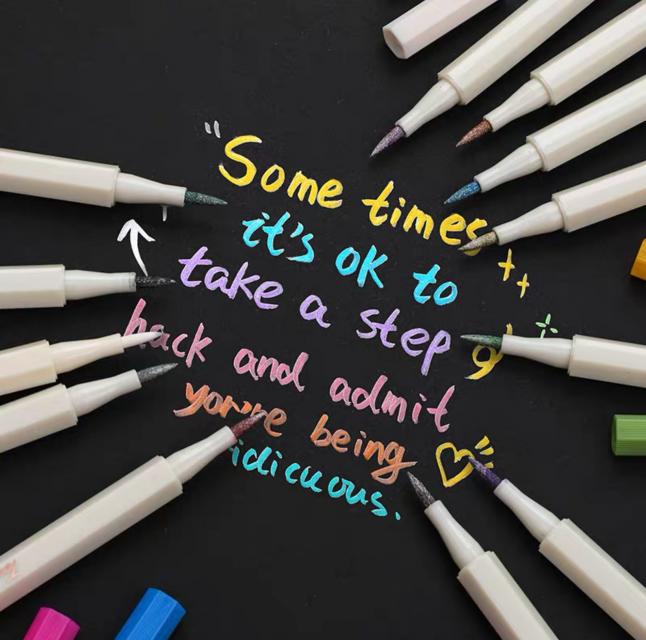 "Some times
it's ok to
take a step
back and admit
you're being
idicuous.